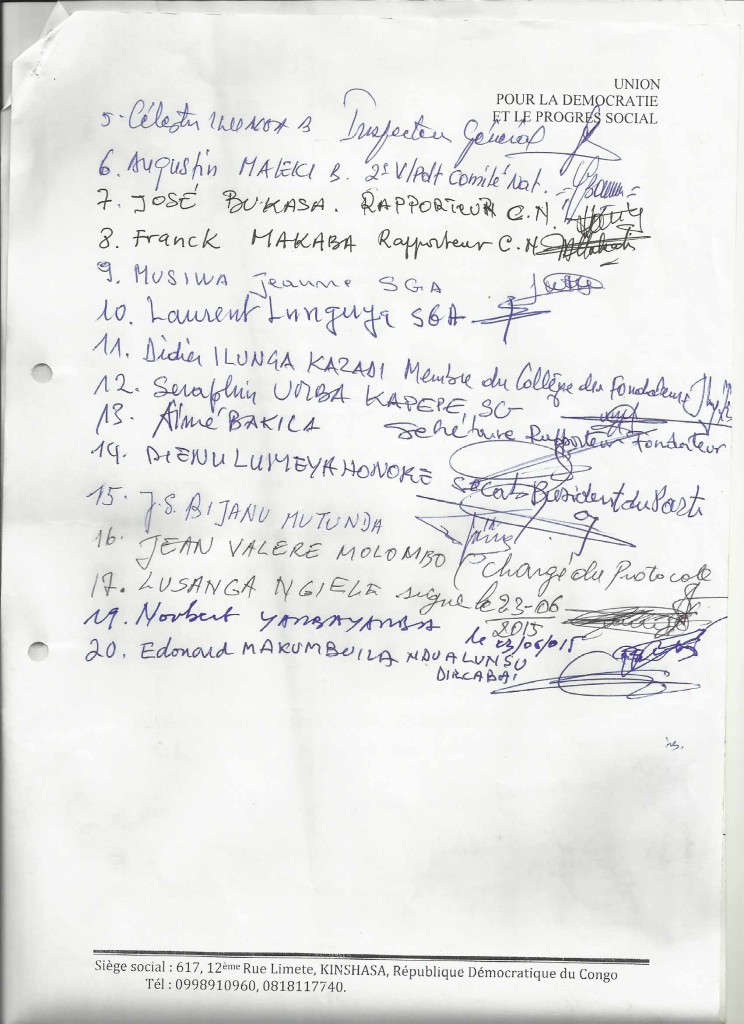 UNION
POUR LA DEMOCRATIE
ET LE PROGRES SOCIAL
5. Célestin ILUNGA B Inspecteur Général
6. Augustin MALEKI B. 2è V/Pdt Comité Nat.
7. JOSÉ BUKASA. RAPPORTEUR C.N.
8. Franck MAKABA Rapporteur C.N
9. MUSIWA Jeanne SGA
10. Laurent Lunguya SGA
11. Didier ILUNGA KAZADI Membre du Collège des Fondateurs
12. Seraphin UMBA KAPEPE, SG
13. Aimé BAKILA Secrétaire Rapporteur Fondateur
14. DIENU LUMEYA HONORE President du Parti
15. J.S. BIJANU MUTUNDA
16. JEAN VALERE MOLOMBO Chargé du Protocole
17. LUSANGA NGIELE signe le 23-06
2015
19. Norbert YAMBAYAMBA le 23/06/015
20. Edouard MAKUMBUILA NDUALUNSU
DIRCABAI
Siège social : 617, 12ème Rue Limete, KINSHASA, République Démocratique du Congo
Tél : 0998910960, 0818117740.